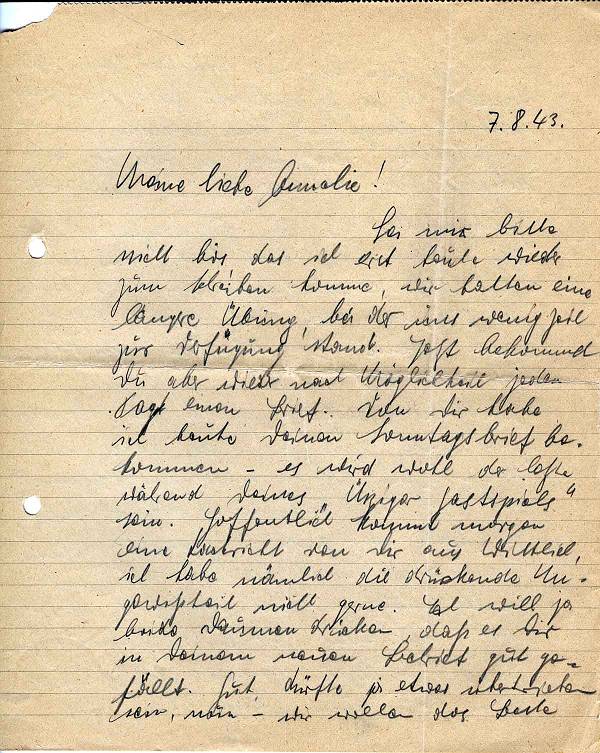 7.8.43.
Meine liebe Annelie!
Sei mir bitte
nicht bös das ich erst heute wieder
zum schreiben komme, wir hatten eine
längere Übung, bei der uns wenig Zeit
zur Verfügung stand. Jetzt bekommst
Du aber wieder nach Möglichkeit jeden
Tag einen Brief. Von Dir habe
ich heute Deinen Sonntagsbrief be-
kommen - es wird wohl der letzte
während Deines Gastspiels"
sein. Hoffentlich kommt morgen
eine Nachricht von Dir aus Wittlich,
ich habe nämlich die drückende Un-
gewißheit nicht gerne. Ich will ja
beide Daumen drücken, daß es Dir
in Deinem neuen Betrieb gut ge-
fällt. Gut, dürfte ja etwas übertrieben
sein, nun - wir wollen das Beste